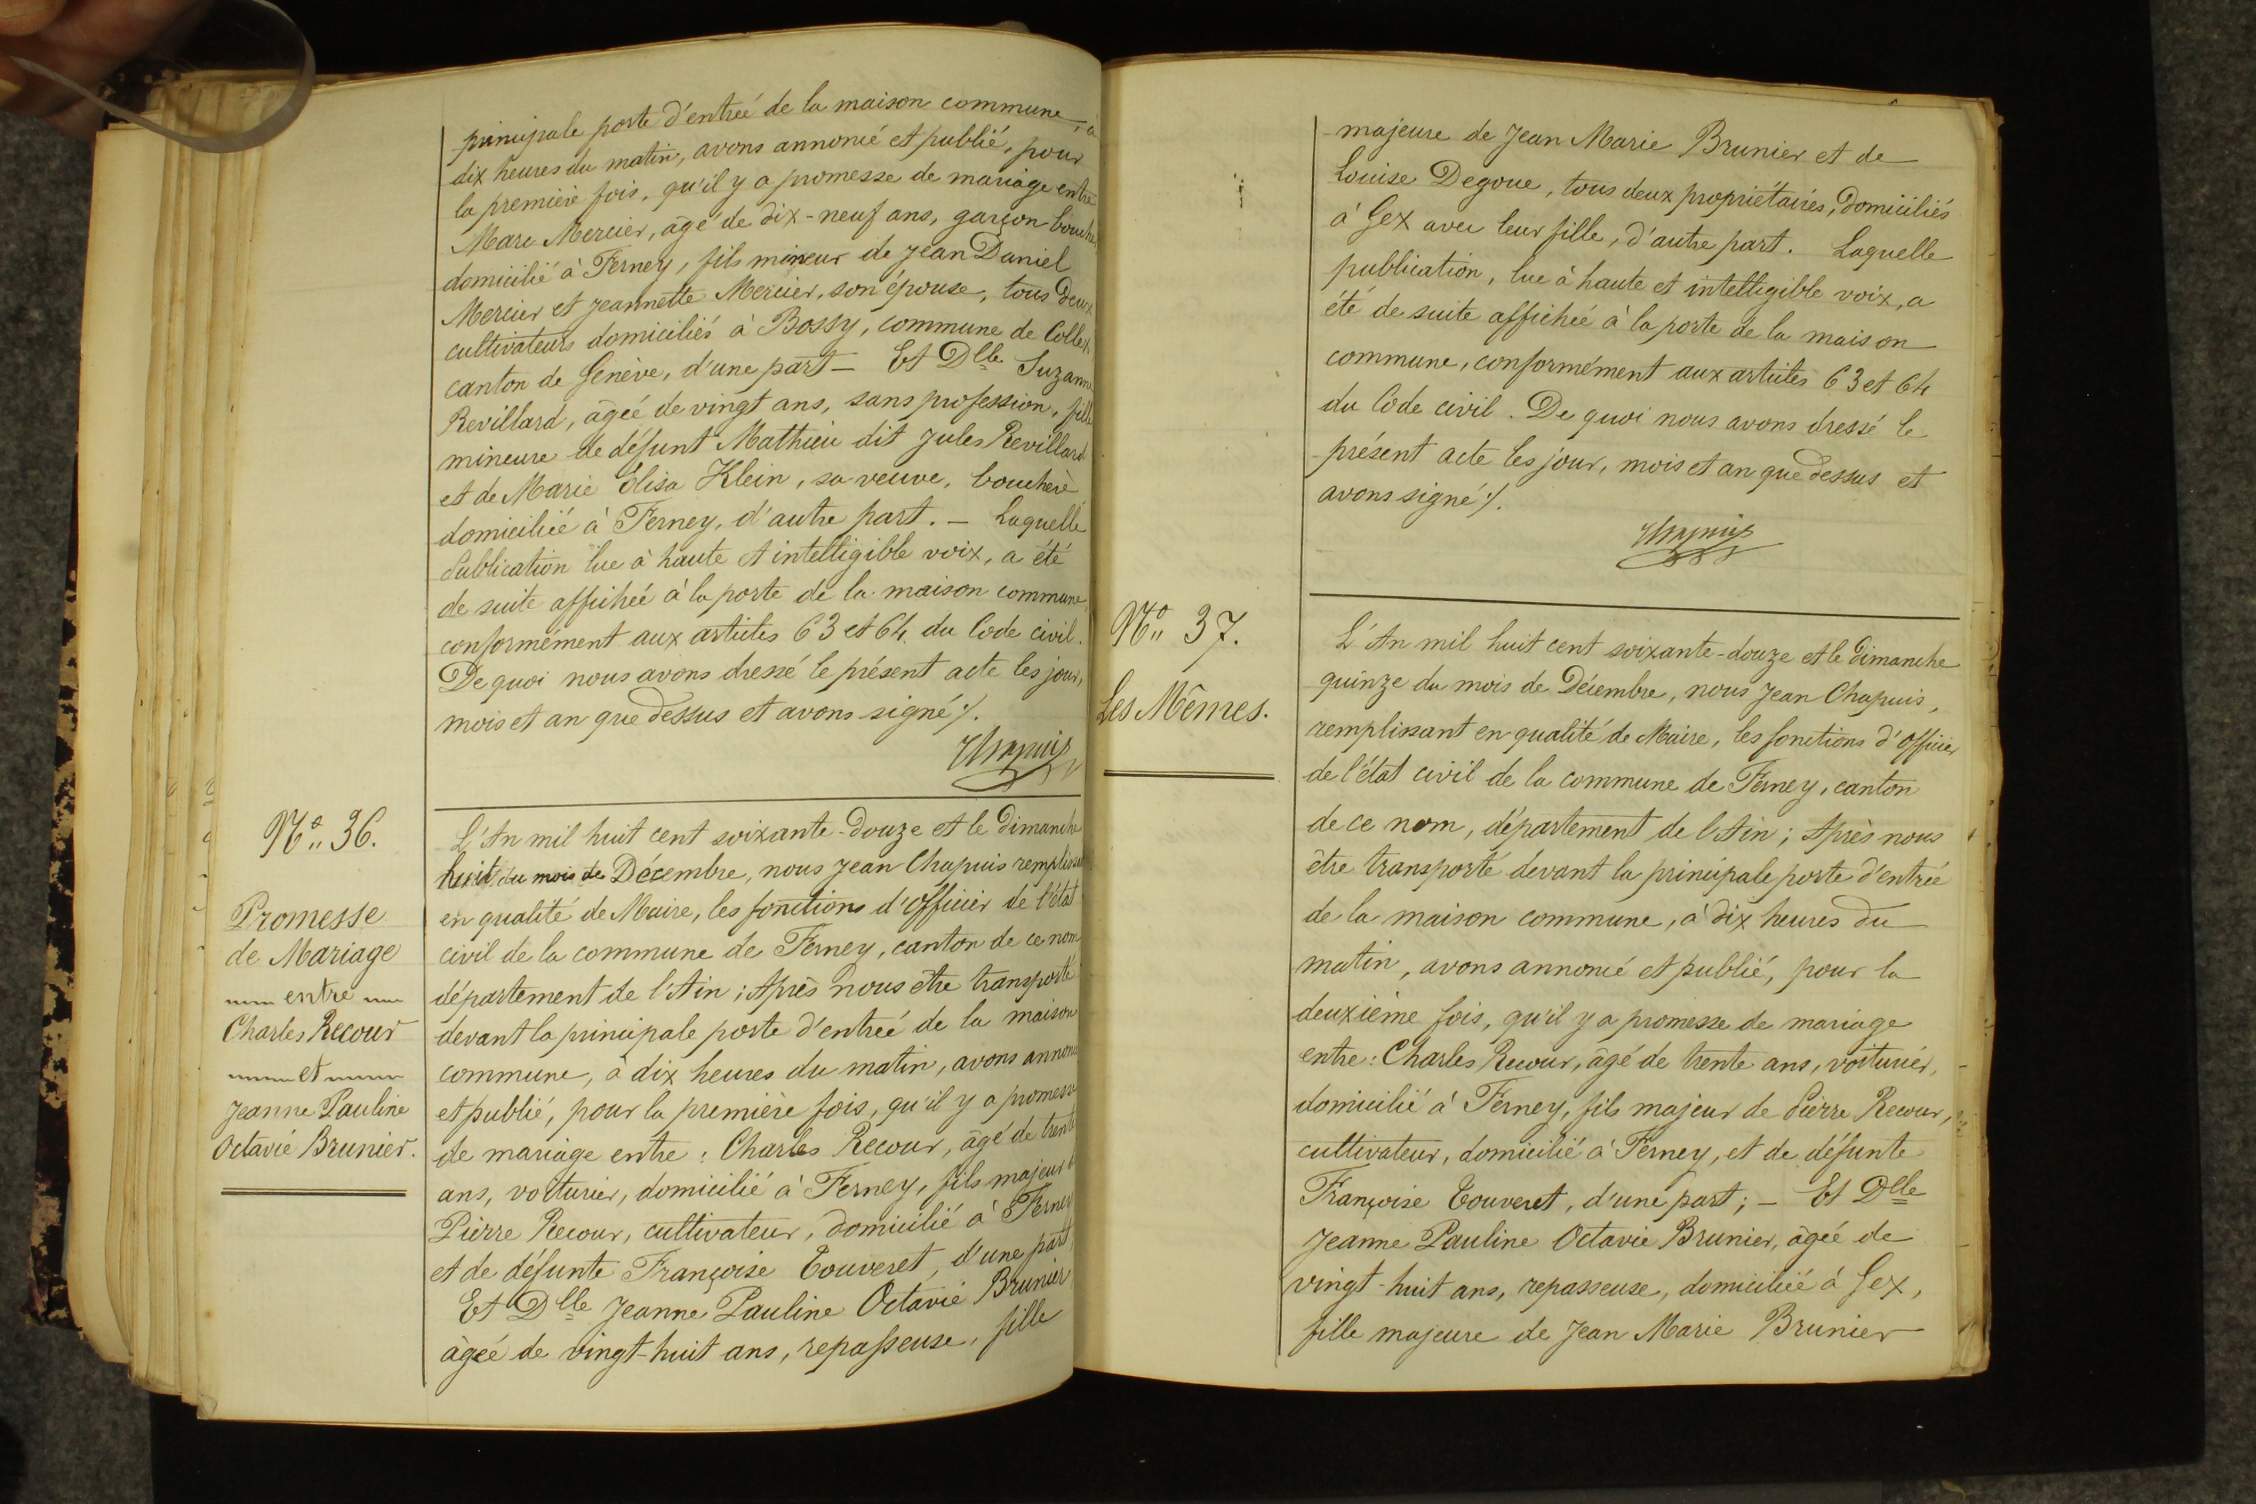 principale porte d'entrée de la maison commune, à
dix heures du matin, avons annoncé et publié, pour
la première fois, qu'il y a promesse de mariage entre
Marc Mercier, âgé de dix-neuf ans, garçon boucher,
domicilié à Ferney, fils mineur de Jean Daniel
Mercier et Jeannette Mercier, son épouse, tous deux
cultivateurs domiciliés à Bossy, commune de Collex
canton de Genève, d'une part — Et Dlle Suzanne
Revillard, âgée de vingt ans, sans profession, fille
mineure de défunt Mathieu dit Jules Revillard
et de Marie Élisa Klein, sa veuve, bouchère
domiciliée à Ferney, d'autre part. — Laquelle
Publication lue à haute et intelligible voix, a été
de suite affichée à la porte de la maison commune,
conformément aux articles 63 et 64 du Code civil.
De quoi nous avons dressé le présent acte les jour,
mois et an que dessus et avons signé ./.
JChapuis
No 36.
Promesse
de Mariage
entre
Charles Recour
et
Jeanne Pauline
Octavie Brunier.
L'An mil huit cent soixante-douze et le dimanche
huit du mois de Décembre, nous Jean Chapuis remplissant
en qualité de Maire, les fonctions d'Officier de l'état
civil de la commune de Ferney, canton de ce nom
département de l'Ain ; Après nous être transporté
devant la principale porte d'entrée de la maison
commune, à dix heures du matin, avons annoncé
et publié, pour la première fois, qu'il y a promesse
de mariage entre : Charles Recour, âgé de trente
ans, voiturier, domicilié à Ferney, fils majeur de
Pierre Recour, cultivateur, domicilié à Ferney
et de défunte Françoise Touveret, d'une part,
Et Dlle Jeanne Pauline Octavie Brunier
âgée de vingt-huit ans, repasseuse, fille
majeure de Jean Marie Brunier et de
Louise Degoue, tous deux propriétaires, domiciliés
à Gex avec leur fille, d'autre part. Laquelle
publication, lue à haute et intelligible voix, a
été de suite affichée à la porte de la maison
commune, conformément aux articles 63 et 64
du Code civil. De quoi nous avons dressé le
présent acte les jour, mois et an que dessus et
avons signé ./.
JChapuis
No 37.
Les Mêmes.
L'An mil huit cent soixante-douze et le dimanche
quinze du mois de Décembre, nous Jean Chapuis,
remplissant en qualité de Maire, les fonctions d'Officier
de l'état civil de la commune de Ferney, canton
de ce nom, département de l'Ain ; Après nous
être transporté devant la principale porte d'entrée
de la maison commune, à dix heures du
matin, avons annoncé et publié, pour la
deuxième fois, qu'il y a promesse de mariage
entre : Charles Recour, âgé de trente ans, voiturier,
domicilié à Ferney, fils majeur de Pierre Recour,
cultivateur, domicilié à Ferney, et de défunte
Françoise Touveret, d'une part ; — Et Dlle
Jeanne Pauline Octavie Brunier, âgée de
vingt-huit ans, repasseuse, domiciliée à Gex,
fille majeure de Jean Marie Brunier